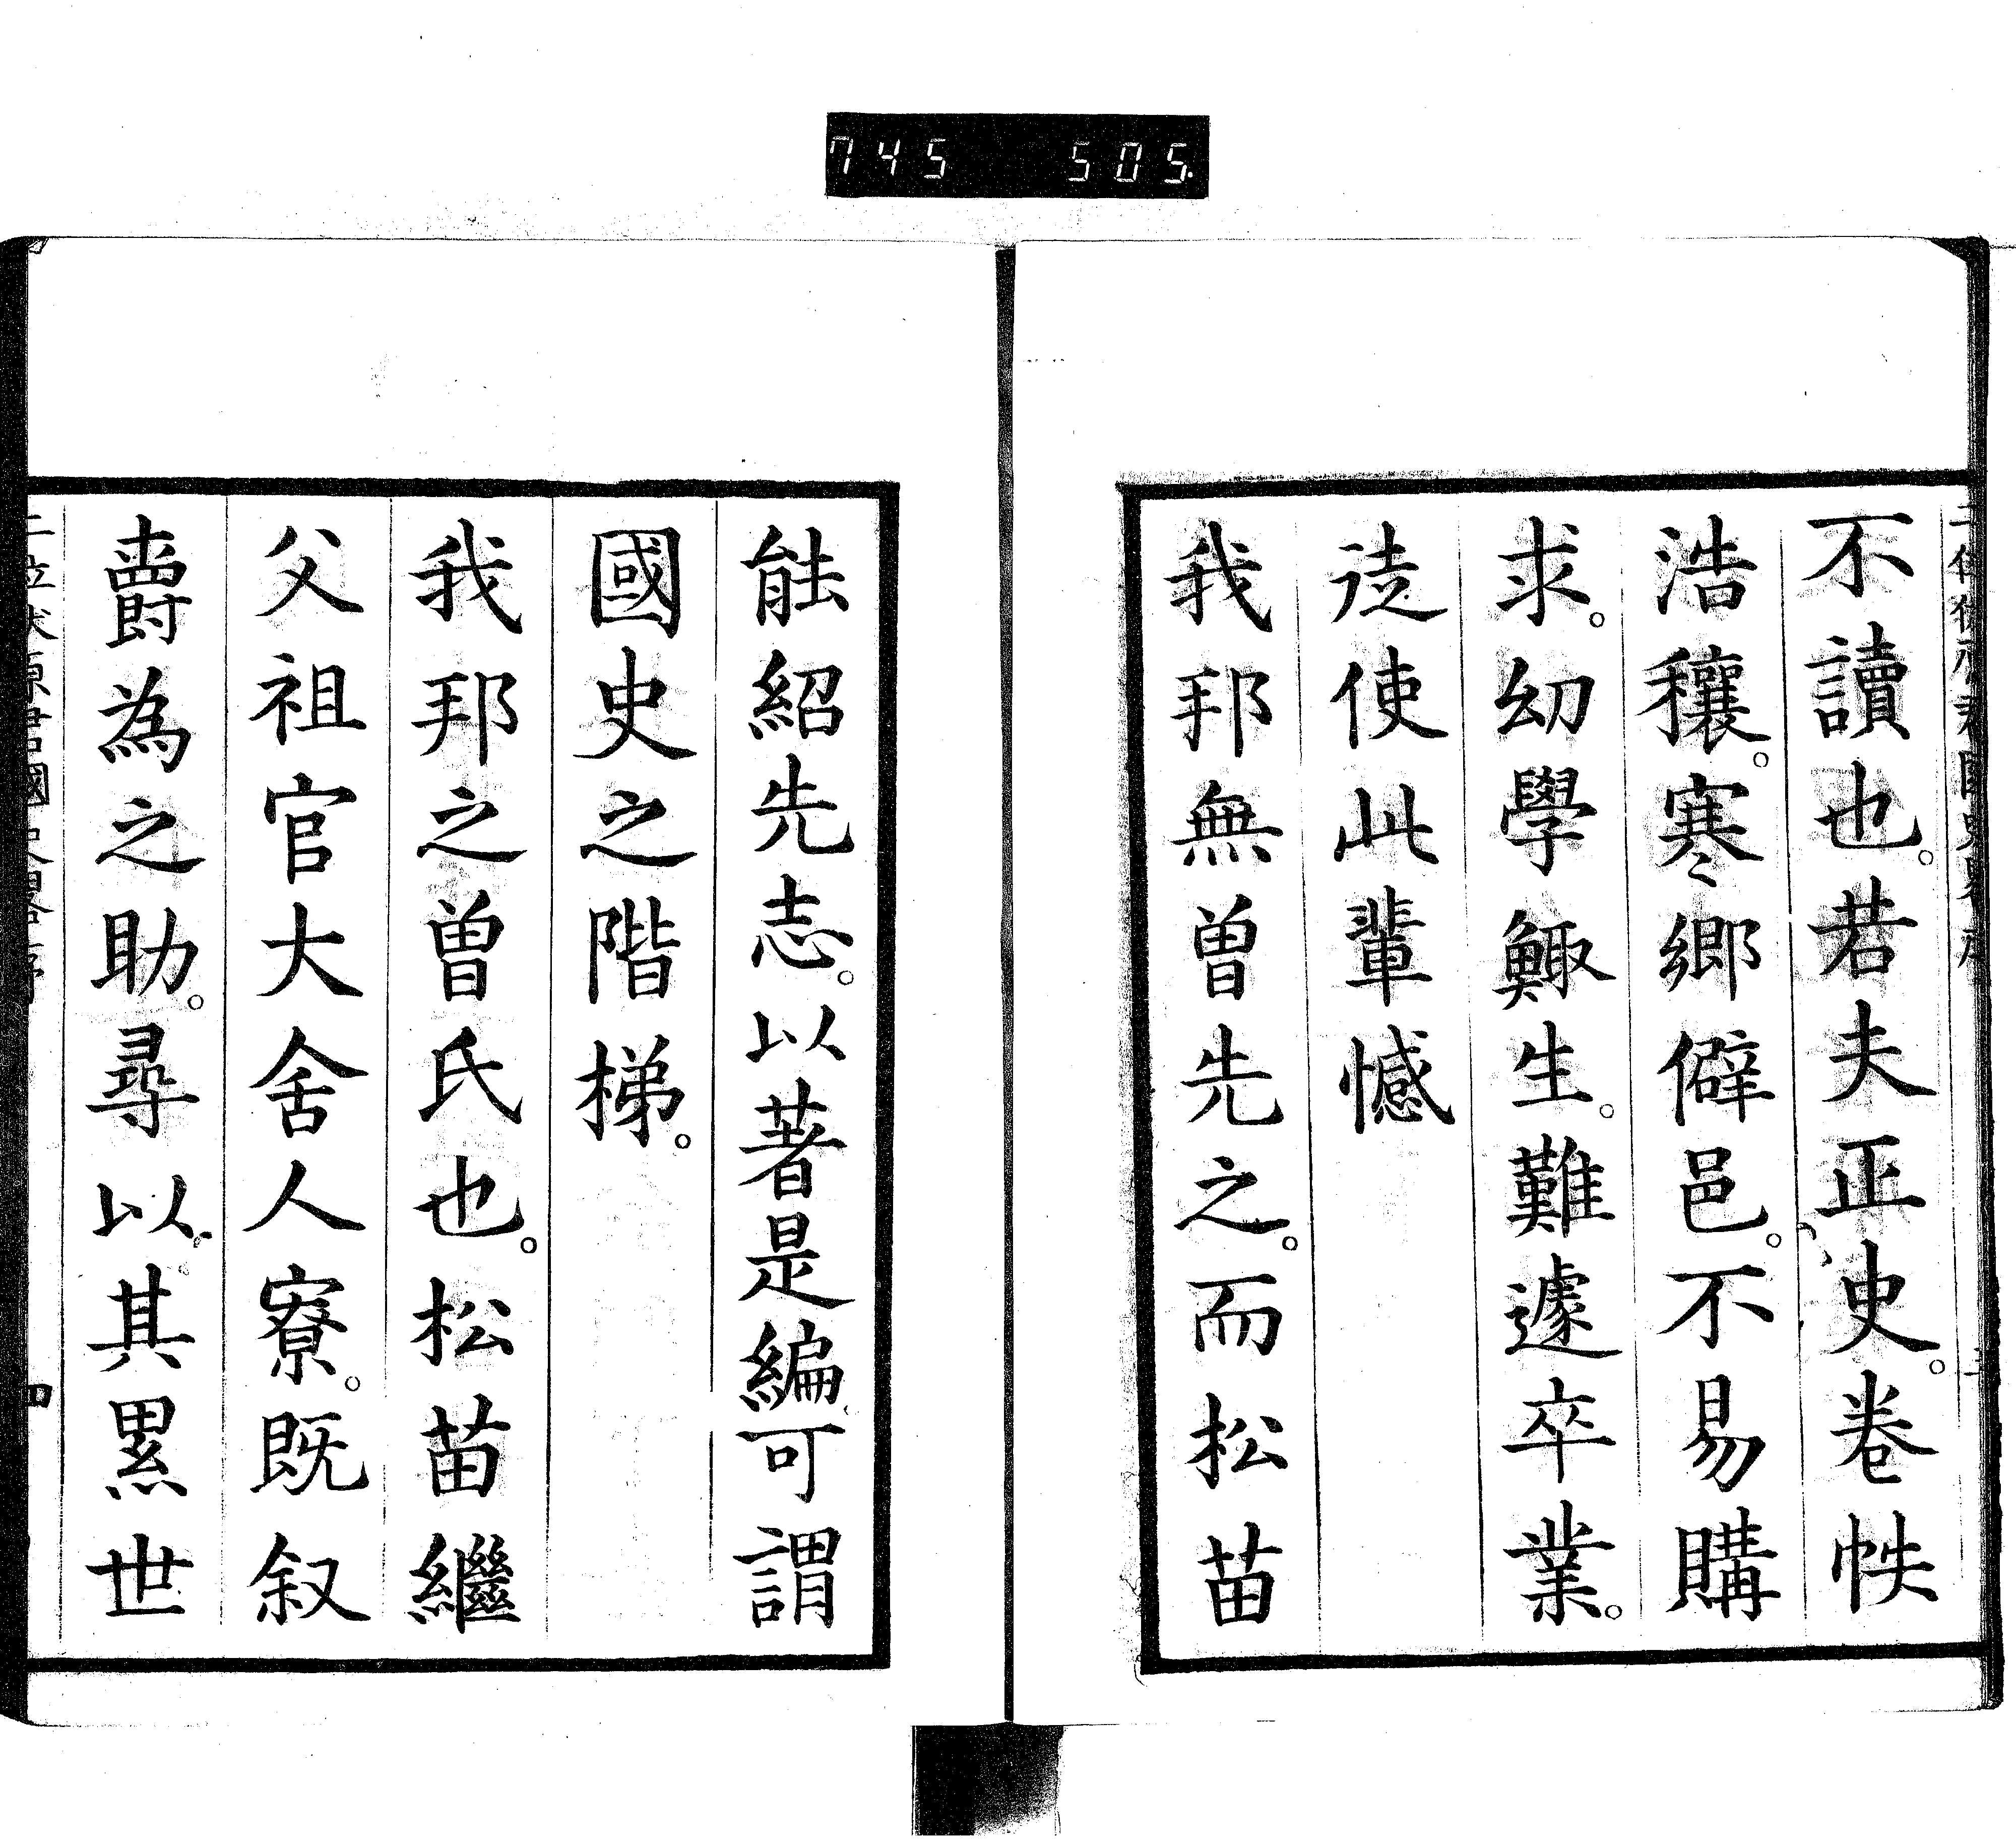 745 505.
不讀也。若夫正史。卷帙
浩穰。寒鄉僻邑。不易購
求。幼學鯫生。難遽卒業。
徒使此輩憾
我邦無曽先之。而松苗
能紹先志。以著是編可謂
國史之階梯。
我邦之曽氏也。松苗繼
父祖官大舍人寮。既叙
爵為之助。尋以其累世